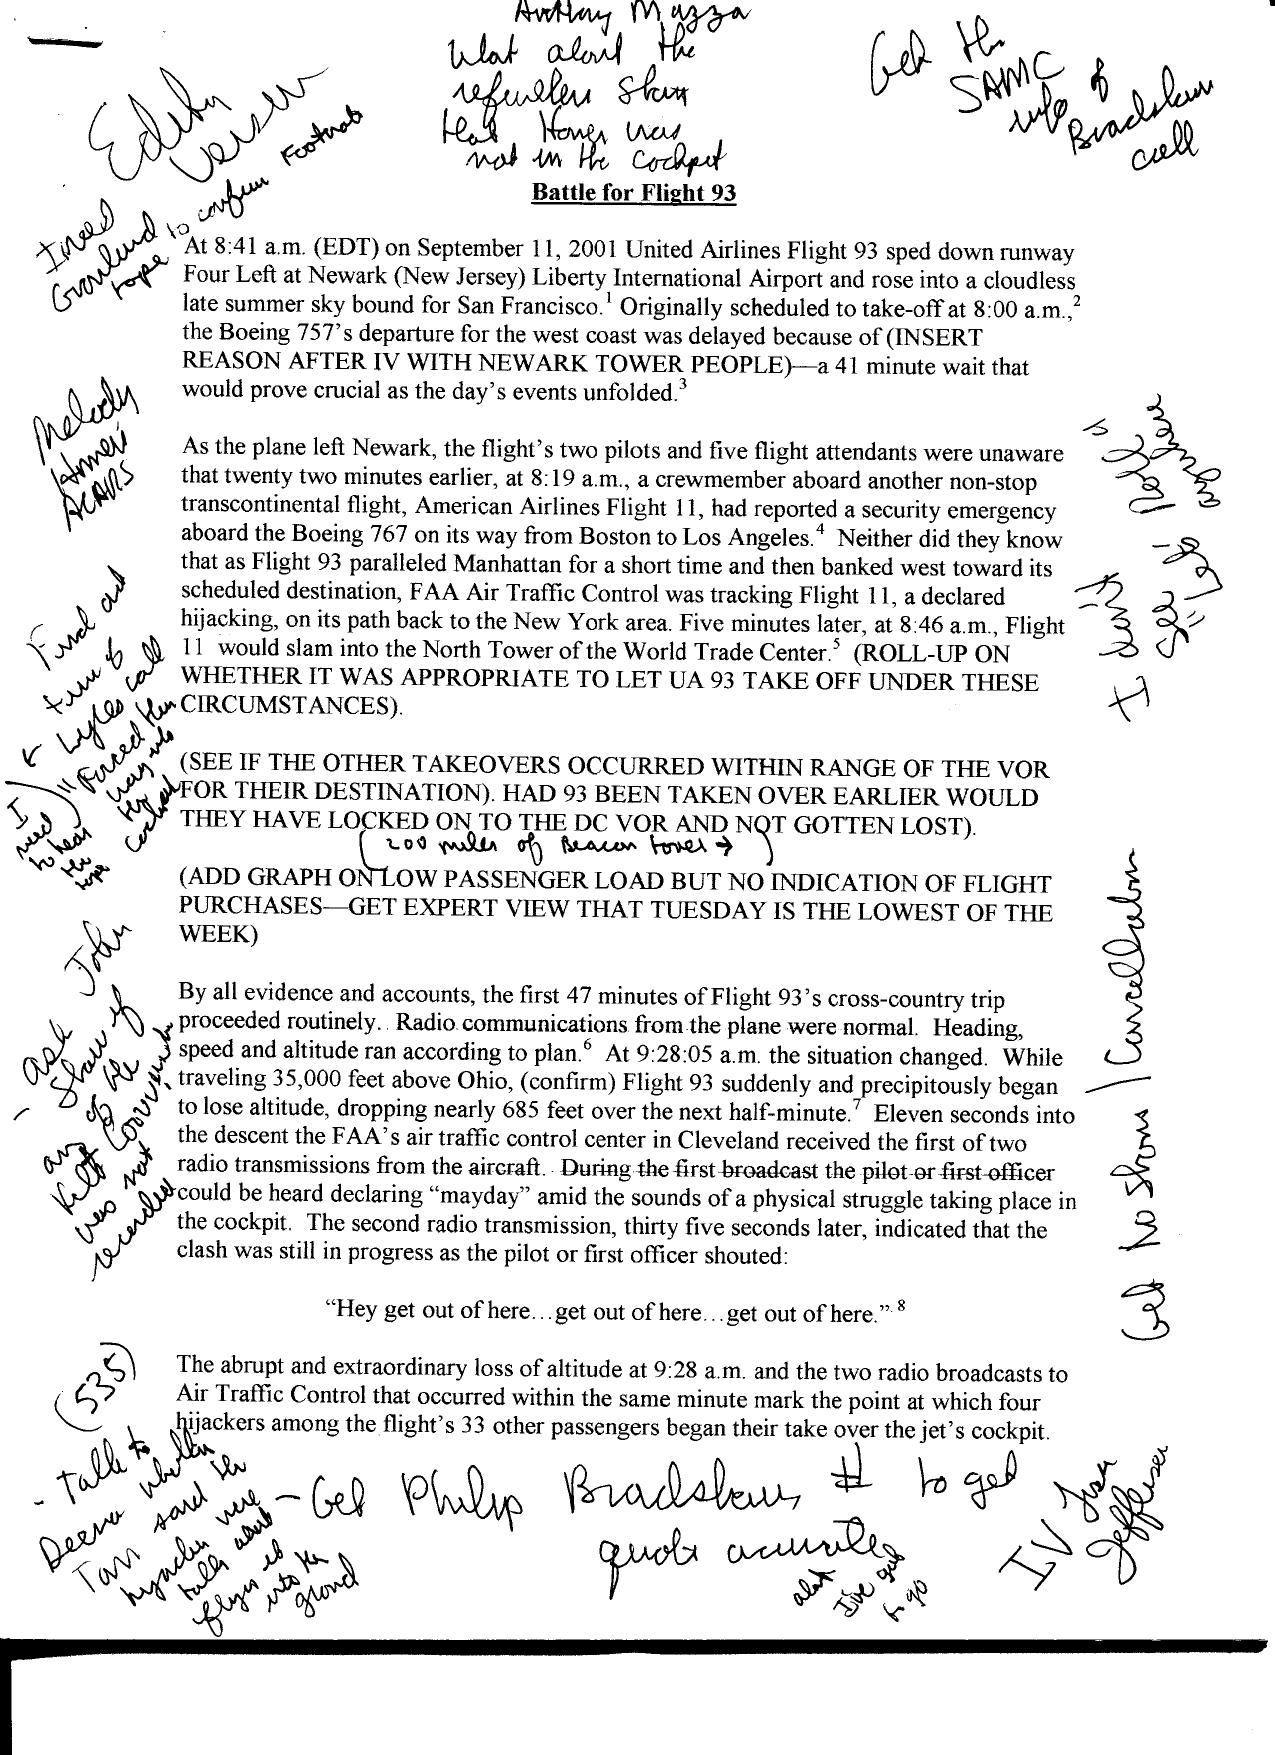 Anthony Mazza
What about the
refuelers
that Homer was
not in the cockpit
Get the
SAMC
info of
Bradshaw
call
I need
to confirm Footnote
tape
Battle for Flight 93
At 8:41 a.m. (EDT) on September 11, 2001 United Airlines Flight 93 sped down runway
Four Left at Newark (New Jersey) Liberty International Airport and rose into a cloudless
late summer sky bound for San Francisco.1 Originally scheduled to take-off at 8:00 a.m.,2
the Boeing 757's departure for the west coast was delayed because of (INSERT
REASON AFTER IV WITH NEWARK TOWER PEOPLE)—a 41 minute wait that
would prove crucial as the day's events unfolded.3
Melody
Homer
ACARS
As the plane left Newark, the flight's two pilots and five flight attendants were unaware
that twenty two minutes earlier, at 8:19 a.m., a crewmember aboard another non-stop
transcontinental flight, American Airlines Flight 11, had reported a security emergency
aboard the Boeing 767 on its way from Boston to Los Angeles.4 Neither did they know
that as Flight 93 paralleled Manhattan for a short time and then banked west toward its
scheduled destination, FAA Air Traffic Control was tracking Flight 11, a declared
hijacking, on its path back to the New York area. Five minutes later, at 8:46 a.m., Flight
11 would slam into the North Tower of the World Trade Center.5 (ROLL-UP ON
WHETHER IT WAS APPROPRIATE TO LET UA 93 TAKE OFF UNDER THESE
CIRCUMSTANCES).
Find out
time of
Lyles call
"Forced their
way into
the
cockpit"
I
need
to hear
the
tape
(SEE IF THE OTHER TAKEOVERS OCCURRED WITHIN RANGE OF THE VOR
FOR THEIR DESTINATION). HAD 93 BEEN TAKEN OVER EARLIER WOULD
THEY HAVE LOCKED ON TO THE DC VOR AND NOT GOTTEN LOST).
(200 miles of Beacon tower →)
(ADD GRAPH ON LOW PASSENGER LOAD BUT NO INDICATION OF FLIGHT
PURCHASES—GET EXPERT VIEW THAT TUESDAY IS THE LOWEST OF THE
WEEK)
- ask John
Shaw if
any of the
was not
recorded
Get no shows / Cancellation
By all evidence and accounts, the first 47 minutes of Flight 93's cross-country trip
proceeded routinely. Radio communications from the plane were normal. Heading,
speed and altitude ran according to plan.6 At 9:28:05 a.m. the situation changed. While
traveling 35,000 feet above Ohio, (confirm) Flight 93 suddenly and precipitously began
to lose altitude, dropping nearly 685 feet over the next half-minute.7 Eleven seconds into
the descent the FAA's air traffic control center in Cleveland received the first of two
radio transmissions from the aircraft. During the first broadcast the pilot or first officer
could be heard declaring "mayday" amid the sounds of a physical struggle taking place in
the cockpit. The second radio transmission, thirty five seconds later, indicated that the
clash was still in progress as the pilot or first officer shouted:
"Hey get out of here…get out of here…get out of here." 8
The abrupt and extraordinary loss of altitude at 9:28 a.m. and the two radio broadcasts to
Air Traffic Control that occurred within the same minute mark the point at which four
hijackers among the flight's 33 other passengers began their take over the jet's cockpit.
(535)
- Talk to
Deena whether
Tom said the
hijackers were
talk about
flying it
into the
ground
- Get Philip Bradshaw # to get
quote accurate
about
I've got
to go
IV Lisa
Jefferson